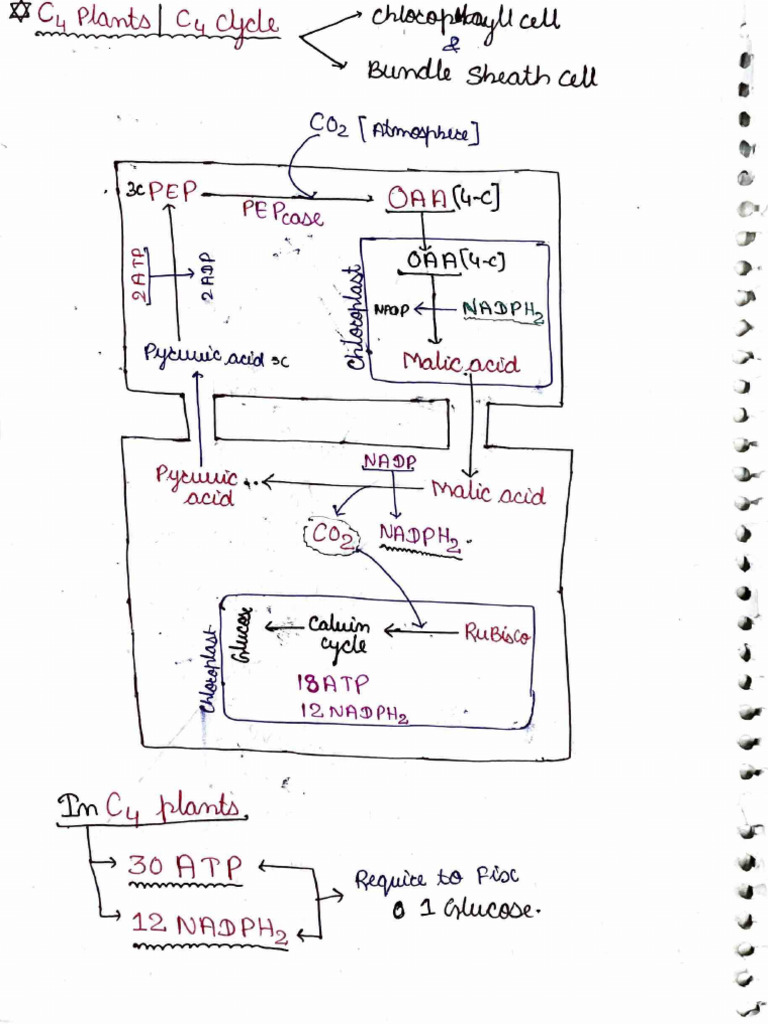 C4 Plants | C4 Cycle
Chlorophyll cell
&
Bundle Sheath cell
CO2 [Atmosphere]
3C PEP
PEPcase
OAA [4-C]
OAA [4-C]
2ATP
2ADP
Chloroplast
NADP
NADPH2
Pyruvic acid 3C
Malic acid
NADP
Pyruvic acid
Malic acid
CO2
NADPH2
Chloroplast
Glucose
Calvin cycle
RuBisco
18 ATP
12 NADPH2
In C4 plants
30 ATP
12 NADPH2
Require to Fix
1 Glucose.